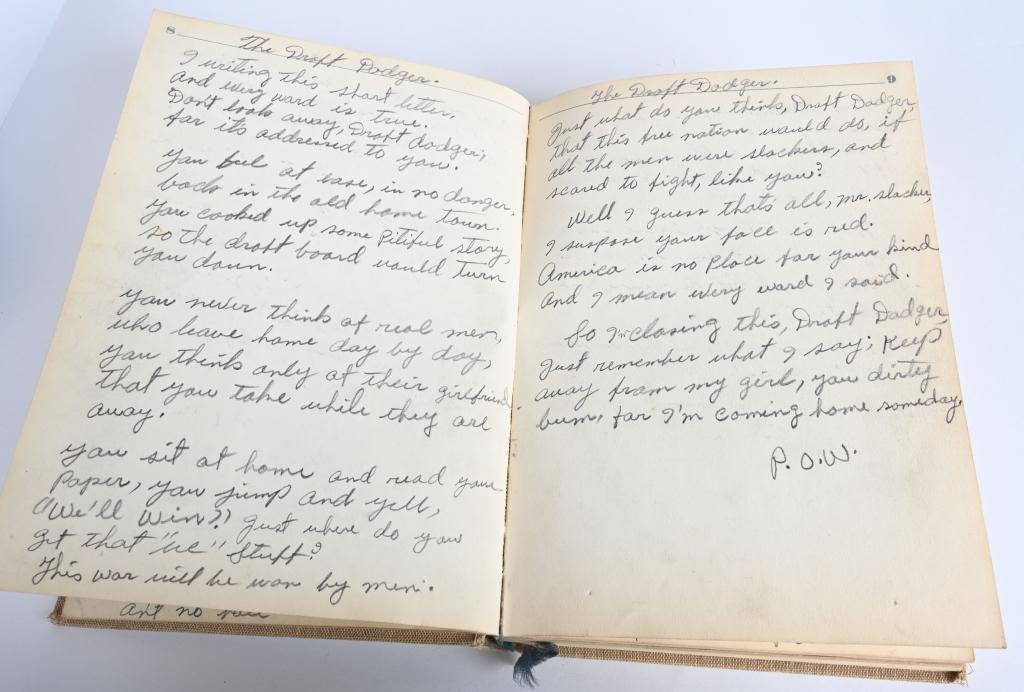 8
The Draft Dodger.
I writing this short letter,
and every word is true,
Don't look away, Draft dodger,
for its addressed to you.
You feel at ease, in no danger,
back in the old home town.
You cooked up some Pitiful story,
so the draft board would turn
you down.
You never think of real men,
who leave home day by day,
You thinks only of their girlfriend
that you take while they are
away.
You sit at home and read your
Paper, you jump and yell,
"We'll Win?" Just where do you
get that "we" stuff?
This war will be won by men.
ant no
9
The Draft Dodger.
Just what do you think, Draft Dodger,
that this free nation would do, if
all the men were slackers, and
scared to fight, like you?
Well I guess that's all, mr. slacker,
I suspose your face is red.
America is no Place for your kind
and I mean every word I said.
So I'm closing this, Draft Dodger
Just remember what I say; Keep
away from my girl, you dirty
bum, for I'm coming home someday.
P.O.W.